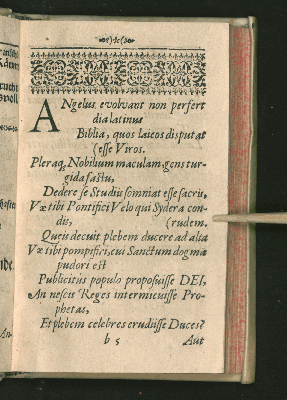 ANgelus evolvant non perfert
dialatinus
Biblia, quos laicos disputat
(esse Viros.
Pleraq; Nobilium maculam, gens tur-
gida fastu,
Dedere se Studiis somniat esse sacris,
Væ tibi Pontifici Velo qui Sydera con-
dis, (rudem.
Queis decuit plebem ducere ad alta
Væ tibi pompifici, cui Sanctum dogma
pudori est
Publicitus populo proposuisse DEI,
An nescis Reges intermicuisse Pro-
phetas,
Et plebem celebres erudiisse Duces?
b 5 Aut